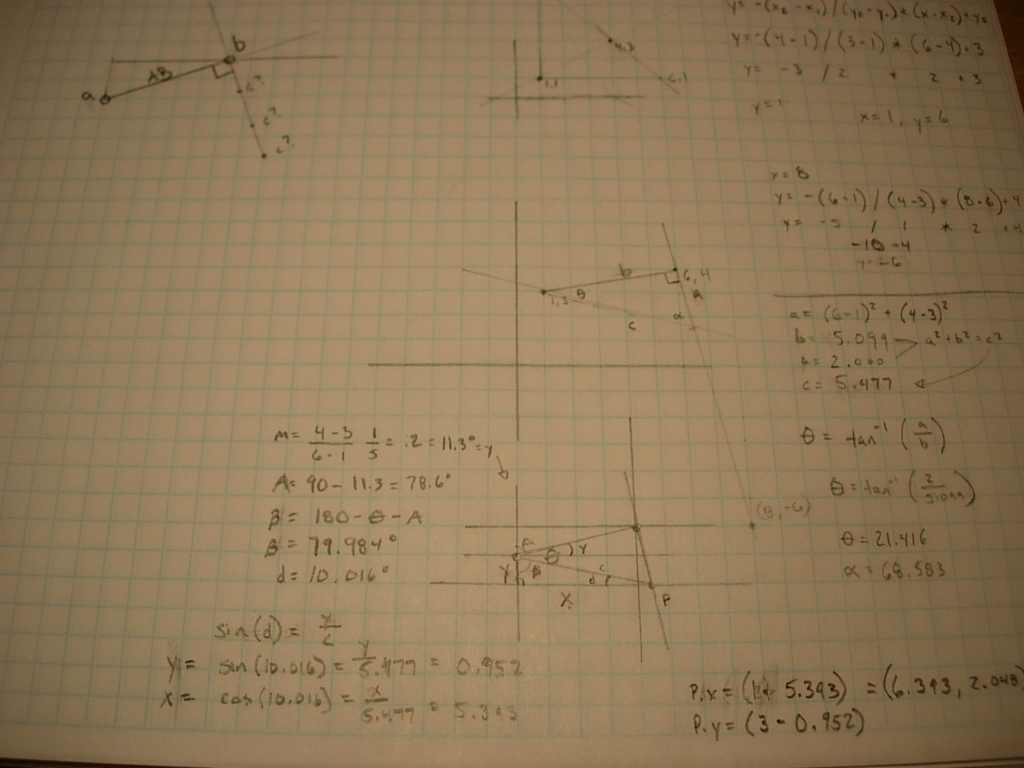 b
AB
a
c?
c?
c?
4,3
1,1
6,1
y = -(x₂ - x₁) / (y₂ - y₁) * (x - x₂) + y₂
y = -(4-1) / (3-1) * (6-4)+3
y = -3 / 2 * 2 + 3
x=1, y=6
x = 8
y = -(6-1) / (4-3) * (8-6)+4
y = -5 / 1 * 2 +4
-10 +4
y = -6
b
6,4
1,3
θ
A
c
α
(8,-6)
a = (6-1)² + (4-3)²
b = 5.099
a²+b²=c²
A = 2.000
c = 5.477
θ = tan⁻¹ (a/b)
θ = tan⁻¹ (2/5.099)
θ = 21.416
α = 68.583
m = 4-3/6-1 1/5 = .2 = 11.3° = γ
A = 90 - 11.3 = 78.6°
B = 180 - θ - A
B = 79.984°
d = 10.016°
θ
γ
B
c
d
Y
X
P
sin(d) = y/c
y = sin(10.016) = y/5.477 = 0.952
X = cos(10.016) = x/5.477 = 5.393
P.x = (1+ 5.393) = (6.393, 2.048)
P.y = (3 - 0.952)